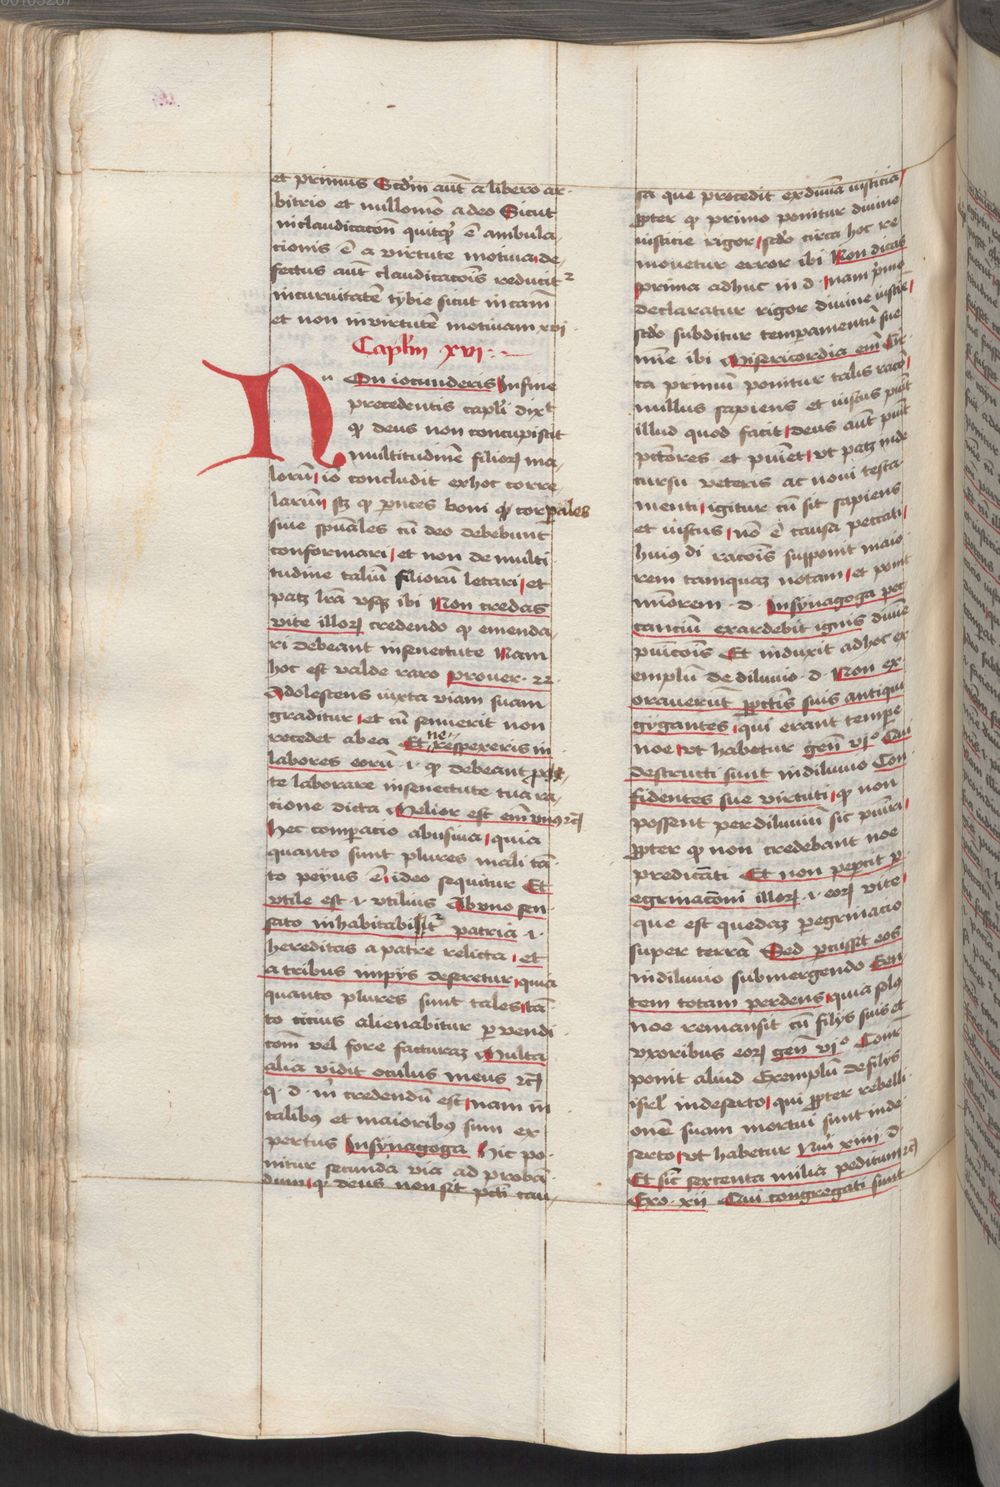 et primus Scd'm aut a libero ar-
bitrio et nullomo adeo Sicut
in claudicacon quitqd' e ambula-
cionis e a virtute motiua de-
fectus aut claudicacois reducit2
in curuitate tybie sicut in cam
et non in virtute motiuam xvi
Capl'm xvi
Non iocunderis In fine
precedentis capl'i dixt
qd deus non concupiscit
multitudine filiorz ma-
lorum io concludit ex hoc corre-
larium sz qd pntes boni qd corpales
siue spuales cu deo debebunt
conformari et non de multi
tudine taliu filioru letari et
patz l'ra vsqz ibi Non credas
vite illorz credendo qd emenda-
ri debeant in senectute Nam
hoc est valde raro prouer 22
Adolescens iuxta viam suam
graditur et cu senuerit non
recedet ab ea Et ne respexeris in
labores eoru i qd debeant
te laborare in senectute tua ra-
cione dicta Melior est em vnus rc
hec comparacio abusiua quia
quanto sunt plures mali ta-
to peyus e ideo sequitur Et
vtile est i vtilius Ab vno sen-
sato inhabitabitr patria i
hereditas a patre relicta et
a tribus impys deseretur quia
quanto plures sunt tales ta
to cicius alienabitur per vendi
com vel fore facturaz Multa
alia vidit oculus meus rc
q d m credendu est nam in
talibus et maioribus sum ex
pertus In synagoga Hic po-
nitur secunda via ad proba
dum qd deus non sit pcti cau
sa que procedit ex diuina iusticia
ppter qd primo ponitur diuine
iusticie rigor scdo circa hoc re
mouetur error ibi Non dicas
prima adhuc in d nam primo
declaratur rigor diuine iusticie
scdo subditur temperamentu sue
mie ibi Misericordia em Cir-
ca primu ponitur talis raco
nullus sapiens et iustus punit
illud quod facit deus aut punit
pctores et puniet vt patz in de
cursu veteris ac noui testa-
menti igitur cu sit sapiens
et iustus no e causa peccati
huius di racois supponit maio-
rem tamquaz notam et ponit
minorem d In synagoga pec
cancium exardebit ignis diuine
punicois Et induxit ad hoc ex
emplu de diluuio d Non ex-
orauerut p pctis suis antiqui
gygantes qui erant tempore
noe vt habetur gen vi° Qui
destructi sunt in diluuio Con
fidentes sue virtuti qd non
possent per diluuiu sic puniri
ppter qd non credebant noe
predicanti Et non pepercit per
egrinacioni illorz i eorz vite
que est quedaz peregrinacio
super terra Sed percussit eos
in diluuio submergendo Gen
tem totam perdens quia solus
noe remansit cu filys suis et
vxoribus eorz gen vi° Cons
ponit aliud Exemplu de filys
isrl' in deserto qui ppter rebelli
one suam mortui sunt in de
serto vt habetur Nui xiiii d
Et sic sexcenta milia peditum rc
Exo xii Qui congregati sunt